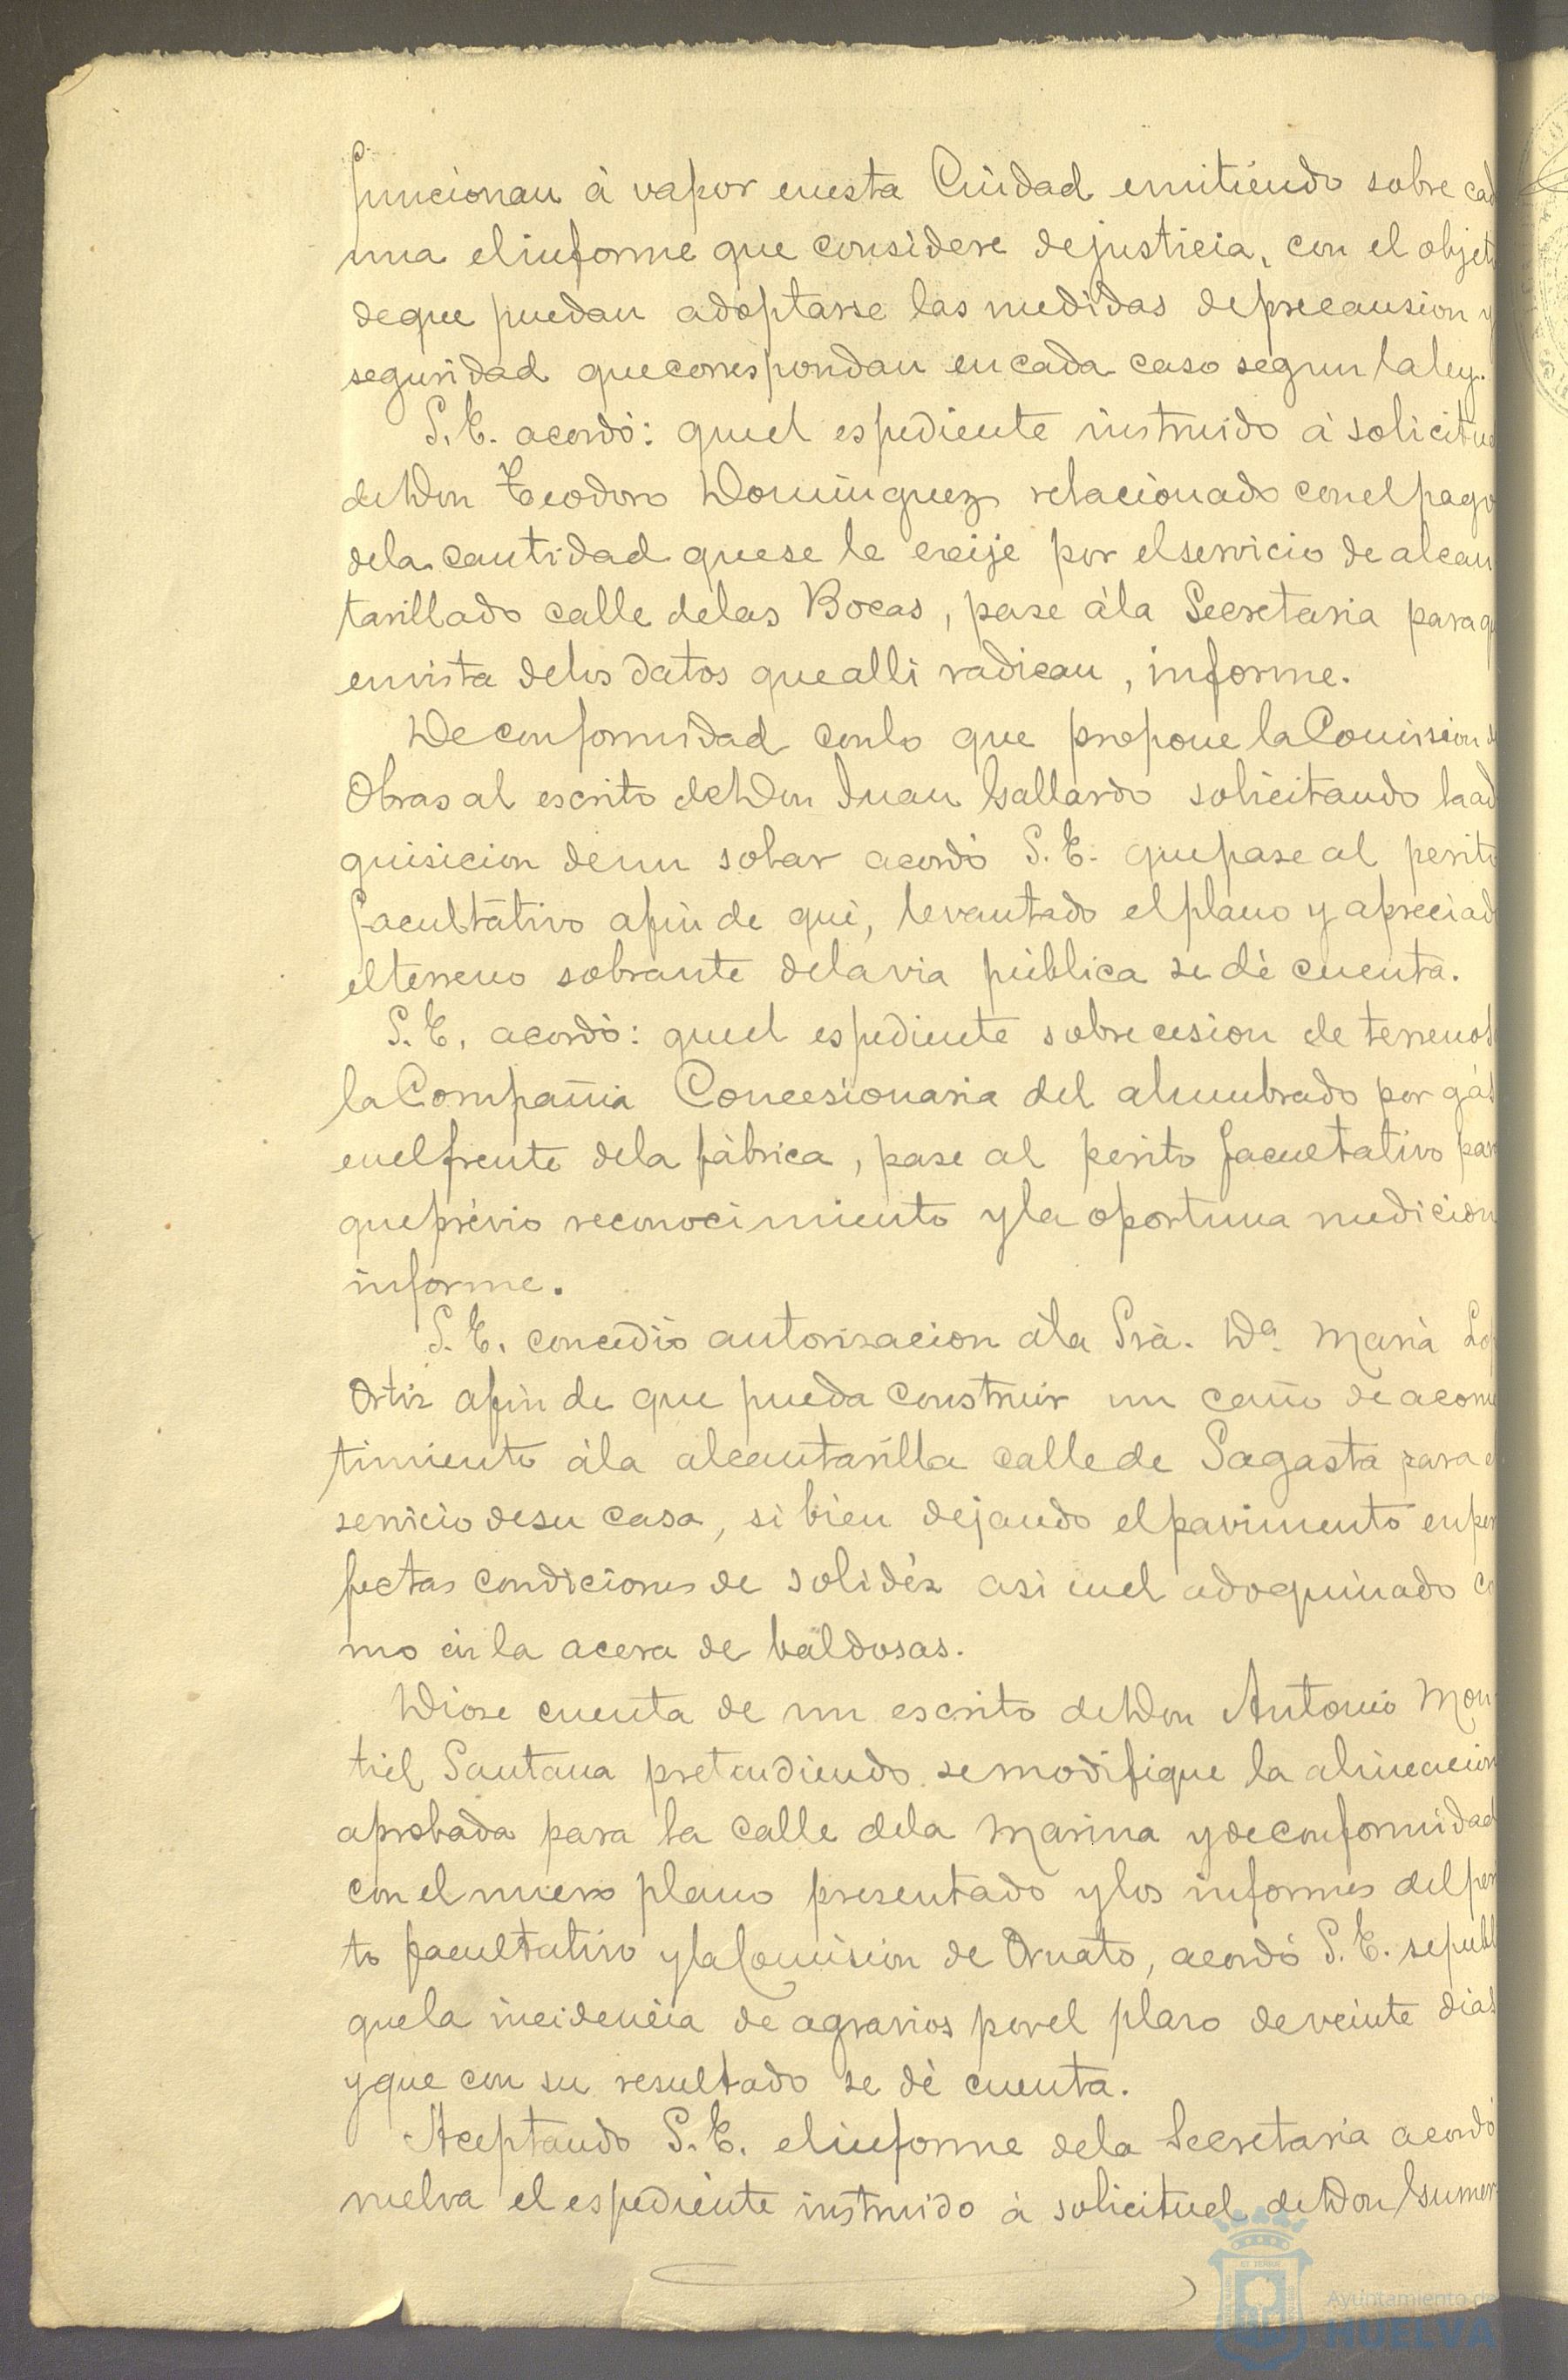 funcionan á vapor enesta Ciudad emitiendo sobre cad
una elinforme que considere dejusticia, con el objet
deque puedan adoptarse las medidas deprecausion y
seguridad quecorrespondan encada caso segun laley.
S. E. acordó: quel espediente instruido á solicitu
deDon Teodoro Dominguez relacionado conelpago
dela cantidad quese le exije por elservicio de alcan
tarillado calle delas Bocas, pase ála Secretaria para q
envista delos datos quealli radican, informe.
Deconformidad conlo que propone laComision d
Obras al escrito deDon Juan Gallardo solicitando laad
quisicion deun solar acordó S. E. quepase al perito
facultativo afin de que, levantado elplano y apreciad
elterreno sobrante delavia pública se dé cuenta.
S. E. acordó: quel espediente sobrecesion de terrenos
laCompañia Concesionaria del alumbrado por gás
enelfrente dela fábrica, pase al perito facultativo par
queprévio reconocimiento yla oportuna medicion
informe.
S. E. concedió autorizacion ála Srà. Dª. Maria Lop
Ortiz afin de que pueda construir un caño de acome
timiento ála alcantarilla callede Sagasta para e
servicio desu casa, si bien dejando elpavimento enper
fectas condiciones de solidéz asi enel adoquinado co
mo en la acera de baldosas.
Diose cuenta de un escrito deDon Antonio Mon
tiel Santana pretendiendo semodifique la alineacion
aprobada para la calle dela Marina ydeconformidad
con el nuevo plano presentado ylos informes delperi
to facultativo ylaComision de Ornato, acordó S. E. sepubli
quela incidencia de agravios porel plazo deveinte dias
yque con su resultado se dé cuenta.
Aceptando S. E. elinforme dela Secretaria acordó
vuelva el espediente instruido á solicitud deDon Gumer
Ayuntamiento de
HUELVA